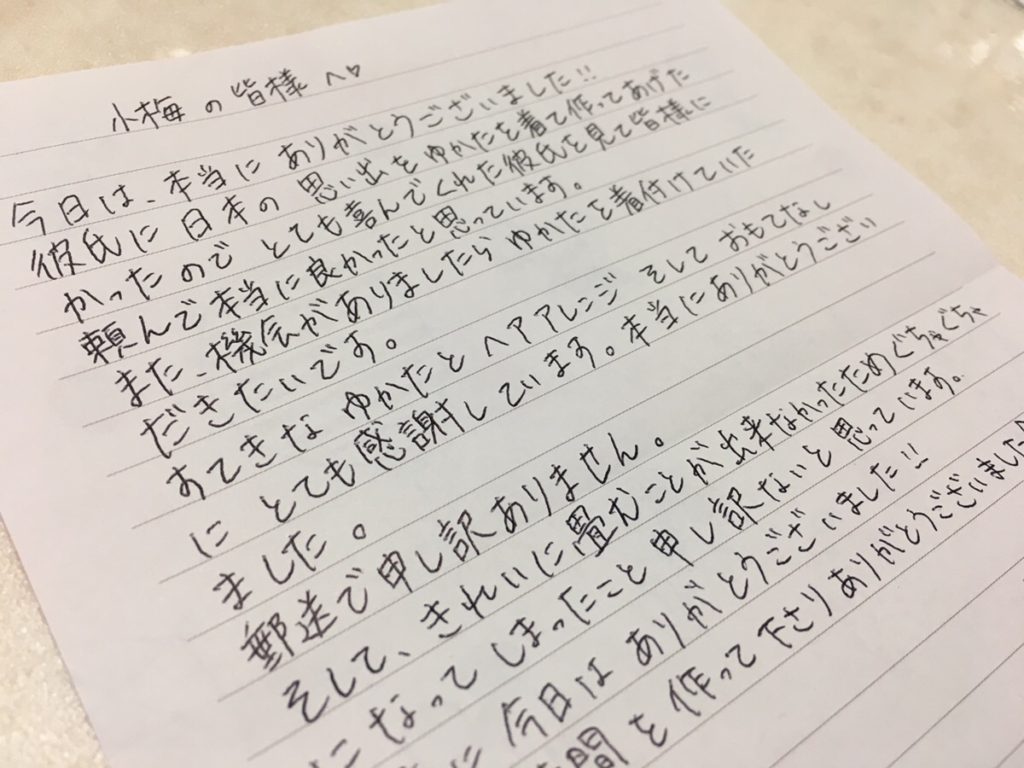 小梅の皆様へ♡
今日は、本当にありがとうございました!!
彼氏に日本の思い出をゆかたを着て作ってあげた
かったのでとても喜んでくれた彼氏を見て皆様に
頼んで本当に良かったと思っています。
また、機会がありましたらゆかたを着付けていた
だきたいです。
すてきなゆかたとヘアアレンジそしておもてなし
にとても感謝しています。本当にありがとうござい
ました。
郵送で申し訳ありません。
そして、きれいに畳むことが出来なかったためぐちゃぐちゃ
になってしまったこと申し訳ないと思っています。
に今日はありがとうございました!!
間を作って下さりありがとうございました